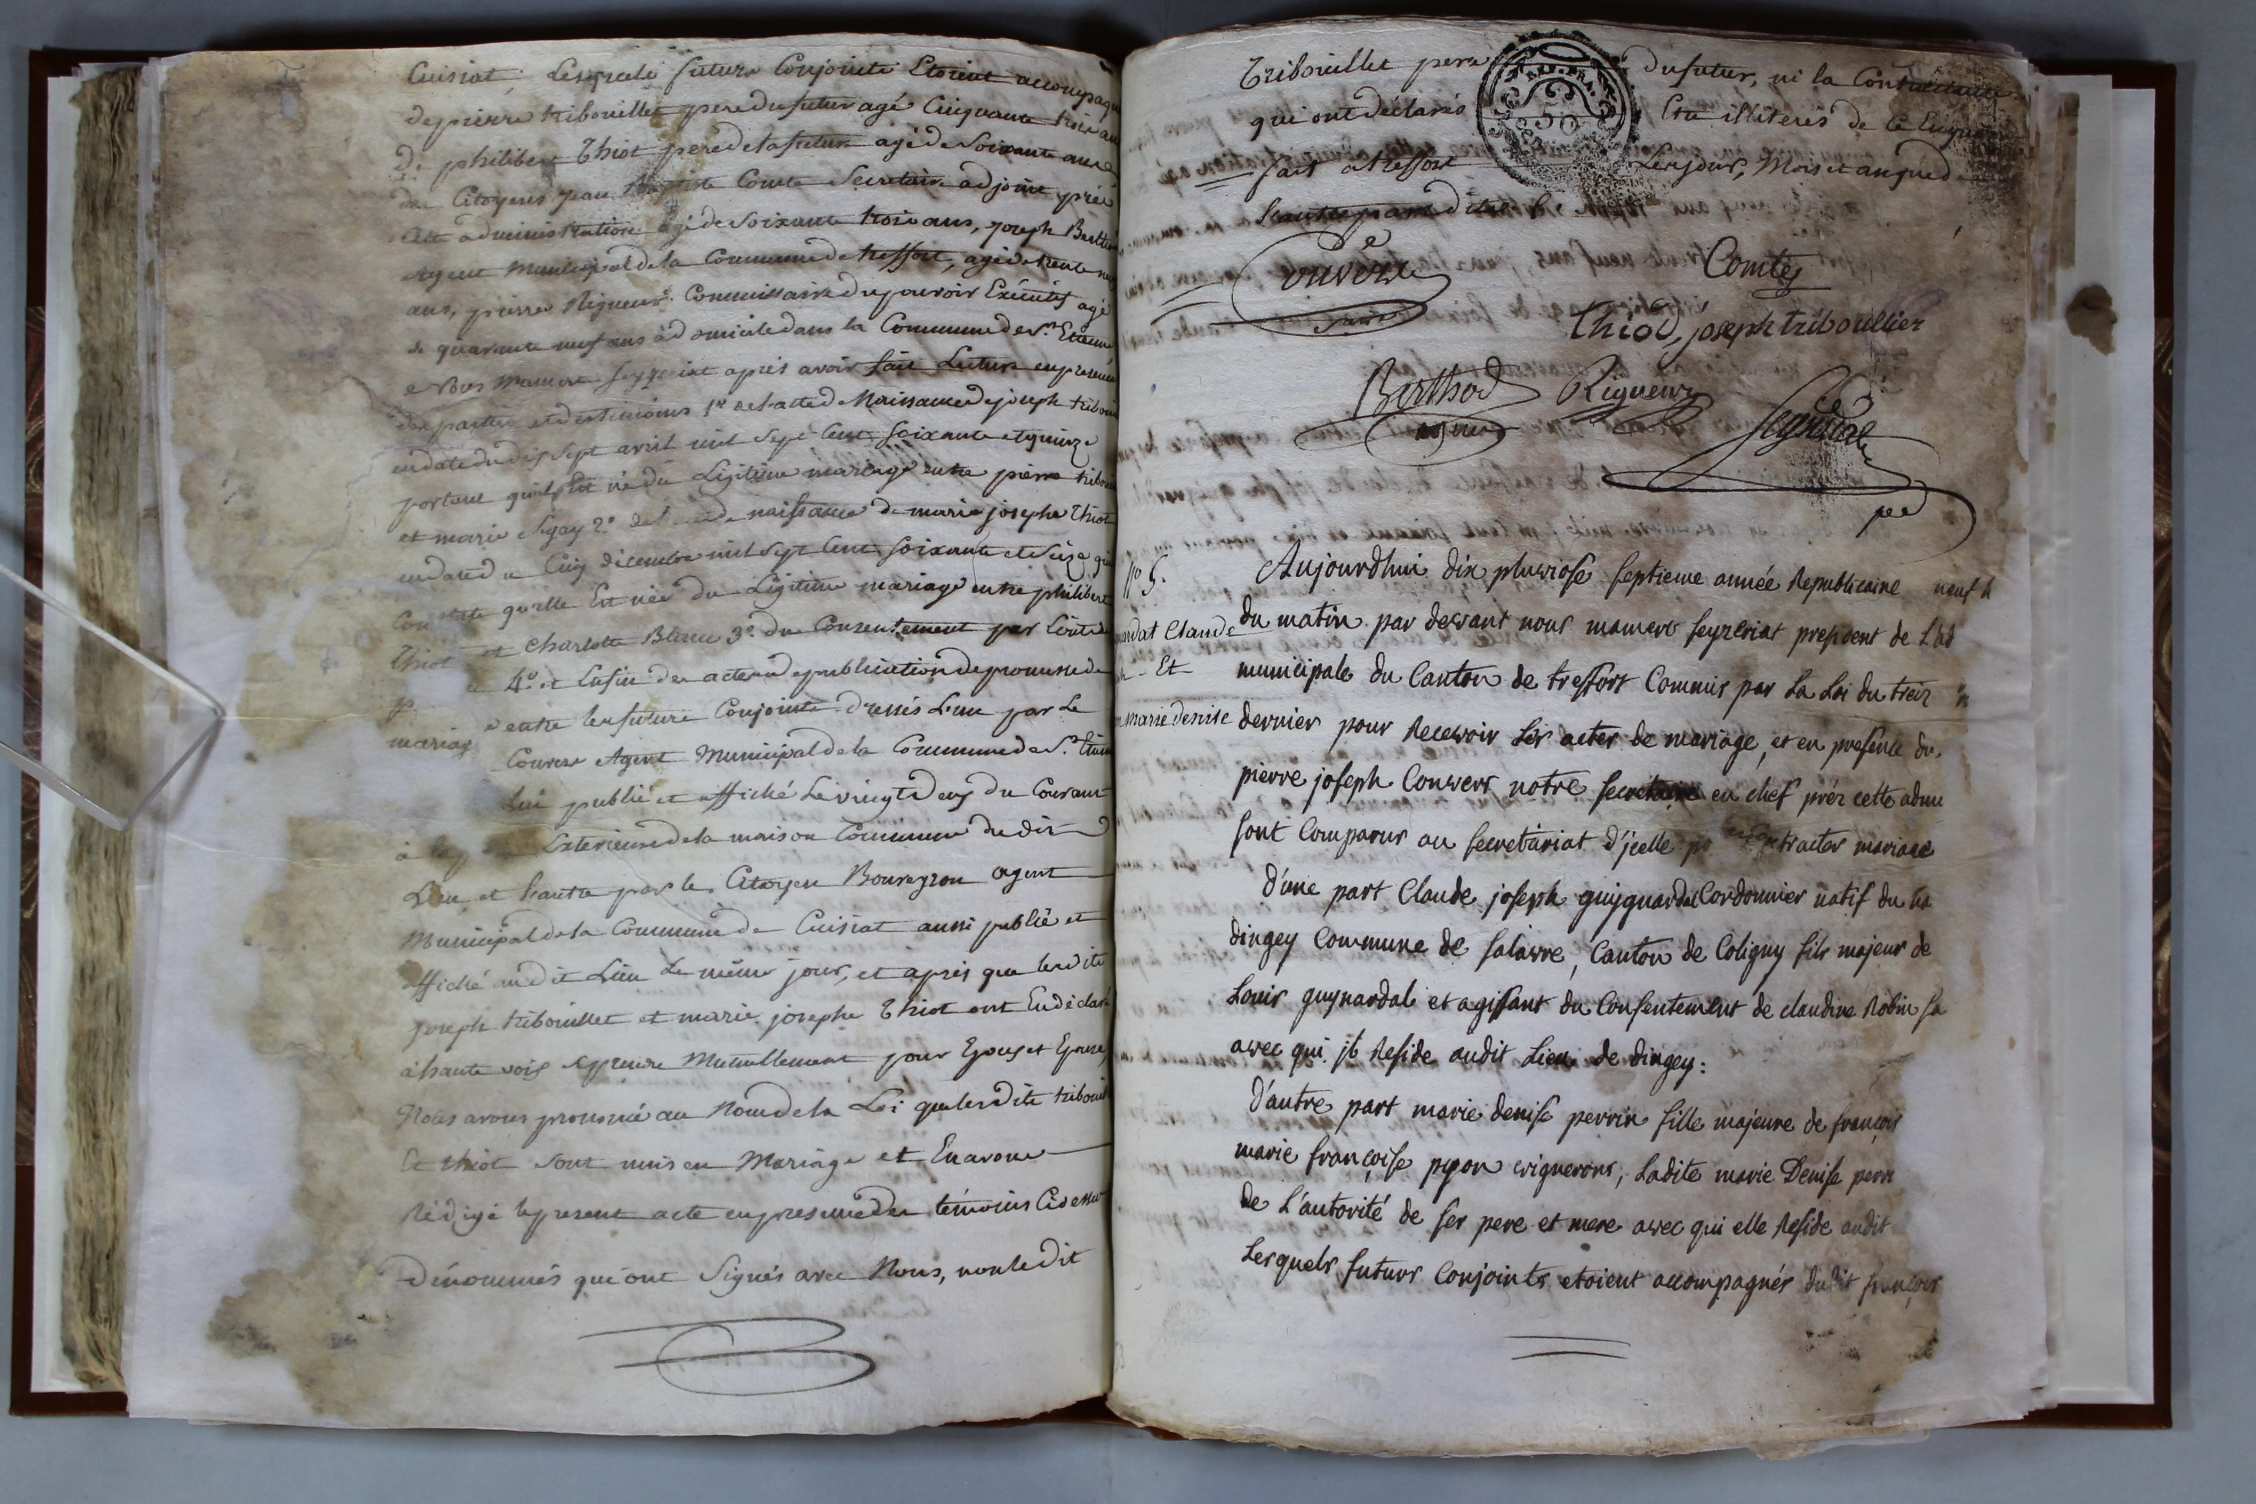 Cuisiat; Lesquels futurs Conjoints Etoient accompagn
de pierre tribouillet pere du futur agé Cinquante trois ans
de philibert Thiot pere de la future agé de Soixante ans
des Citoyens jean baptiste Comte Secretaire adjoint près
Cette administration agé de Soixante trois ans, joseph Berthod
agent Municipal de la Commune de treffort, agé de trente neuf
ans, pierre Rigueur Commissaire du pouvoir Exécutif agé
de quarante neuf ans domicilié dans la Commune de St. Etienne
Nous Mamert Seyzeriat après avoir fait Lecture en presence
des parties et des temoins 1o. de l'acte de Naissance de joseph tribouil
en date du dix Sept avril mil Sept Cent Soixante et quinze
portant quil Est né du Légitime mariage entre pierre tribou
et marie 2o. de naissance de marie josephe Thiot
en date du Cinq décembre mil Sept Cent Soixante et Seize qui
Constate qu'elle Est née du Légitime mariage entre philibert
Thiot et Charlotte Blanc 3o. du Consentement par
4o. et Enfin des actes de publication de promesse de
mariage entre les futurs Conjoints dressés L'un par Le
Agent Municipal de la Commune de St. Etien
Lui publié et affiché Le vingt deux du Courant
à la Exterieure de la maison Commune du dit
Lieu et L'autre par le Citoyen Bouveyron agent
Municipal de la Commune de Cuisiat aussi publié et
affiché audit Lieu Le même jour, et après que lesdits
joseph tribouillet et marie josephe Thiot ont Eu déclaré
à haute voix Se prendre Mutuellement pour Epoux et Epouse
Nous avons prononcé au Nom de la Loi que lesdits tribouil
Et thiot sont unis en Mariage et En avons
Rédigé le present acte en presence des témoins Ci dessus
Dénommés qui ont Signés avec Nous, non ledit
Tribouillet pere du futur, ni la Contractante
qui ont déclarés Etre illiterés de ce Enquis
fait à treffort Les jour, Mois et an que d
L'autre part dits
Couvers
Comte
Thiod, joseph triboullier
Berthod Rigueur
agent
Seyzeriat
pt
No 5.
Aujourdhui dix pluviose septieme année Republicaine neuf h
dat Claude
du matin par devant nous mamert seyzeriat president de L'ad
Et
municipale du Canton de treffort Commis par La Loi du treiz
marie denise
dernier pour Recevoir Les actes de mariage, et en presence du
pierre joseph Couvers notre secretaire en chef près cette admi
sont Comparus au secretariat d'jcelle contracter mariage
D'une part Claude joseph guyguardat Cordonnier natif du
dingey Commune de salavre, Canton de Coligny fils majeur de
Louis guynardat et agissant du Consentement de claudine Robin sa
avec qui jl Reside audit Lieu de dingey:
D'autre part marie denise perrin fille majeure de françois
marie françoise pepon vignerons, Ladite marie Denise perri
de L'autorité de ses pere et mere avec qui elle Reside audit
Lesquels futurs Conjoints etoient accompagnés dudit françois